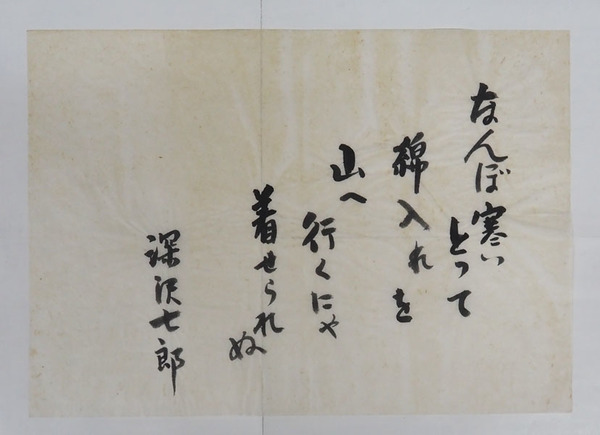 なんぼ寒い
とって
綿入れを
山へ
行くにゃ
着せられ
ぬ
深沢七郎